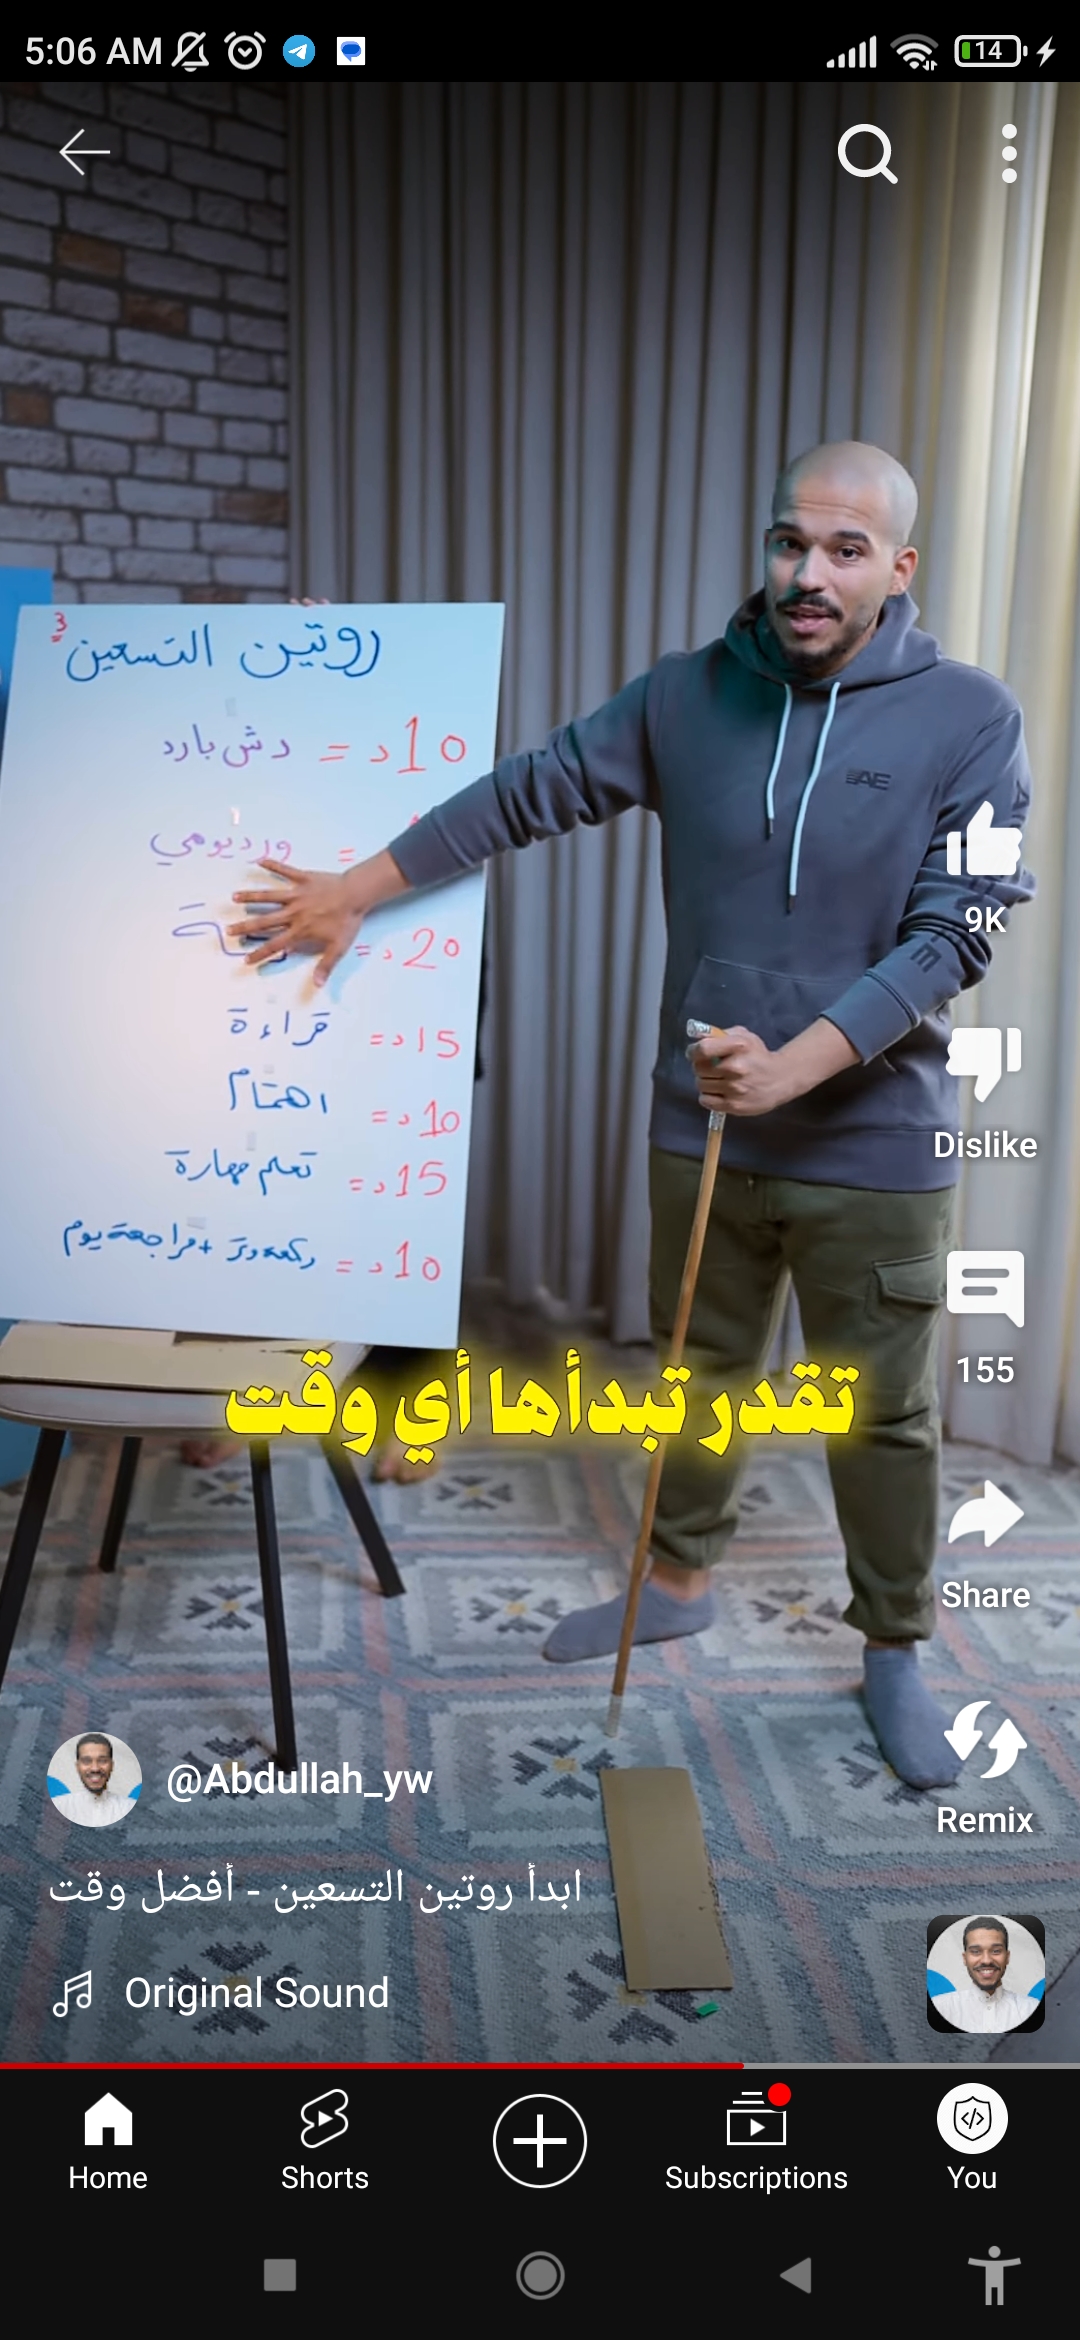 5:06 AM
14
روتين التسعين
3
10 د = دش بارد
= ورد يومي
20 د =
15 د = قراءة
10 د = اهتمام
15 د = تعلم مهارة
10 د = ركعة وتر + مراجعة يوم
AE
تقدر تبدأها أي وقت
9K
Dislike
155
Share
Remix
@Abdullah_yw
ابدأ روتين التسعين - أفضل وقت
Original Sound
Home
Shorts
Subscriptions
You